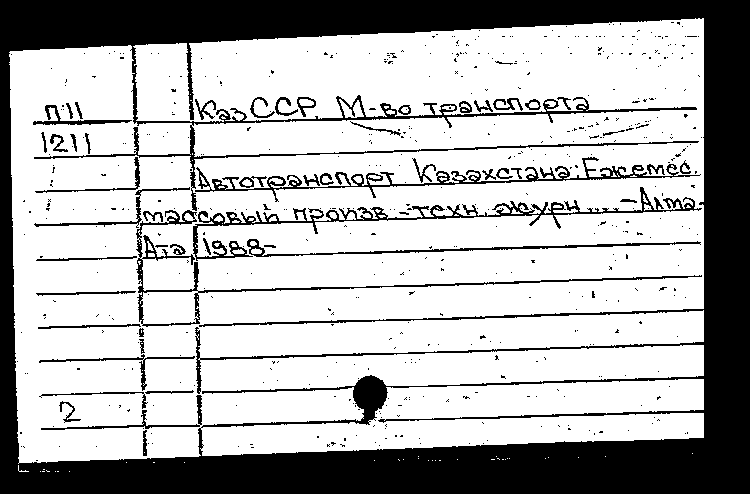 П11 КазССР. М-во транспорта
1211
Автотранспорт Казахстана: Ежемес.
массовый произв.-техн. журн. ... - Алма-
Ата, 1988-
2